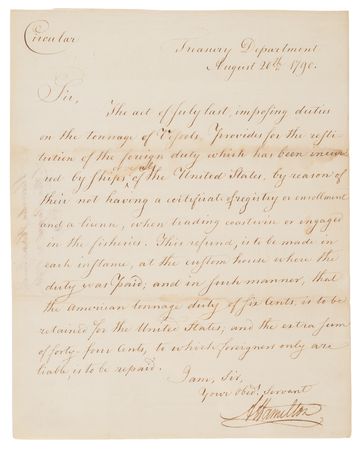 Circular
Treasury Department
August 20th 1790.
Sir,
The act of July last, imposing duties
on the tonnage of Vessels, provides for the resti
tution of the foreign duty which has been incur
red by ships only of the United States, by reason of
their not having a certificate of registry or enrollment
and a licence, when trading coastwise or engaged
in the fisheries. This refund, is to be made in
each instance, at the custom house where the
duty was paid; and in such manner, that
the american tonnage duty of six Cents, is to be
retained for the United States, and the extra sum
of forty-four Cents, to which foreigners only are
liable, is to be repaid.
I am, Sir,
Your Obedt. Servant
A Hamilton